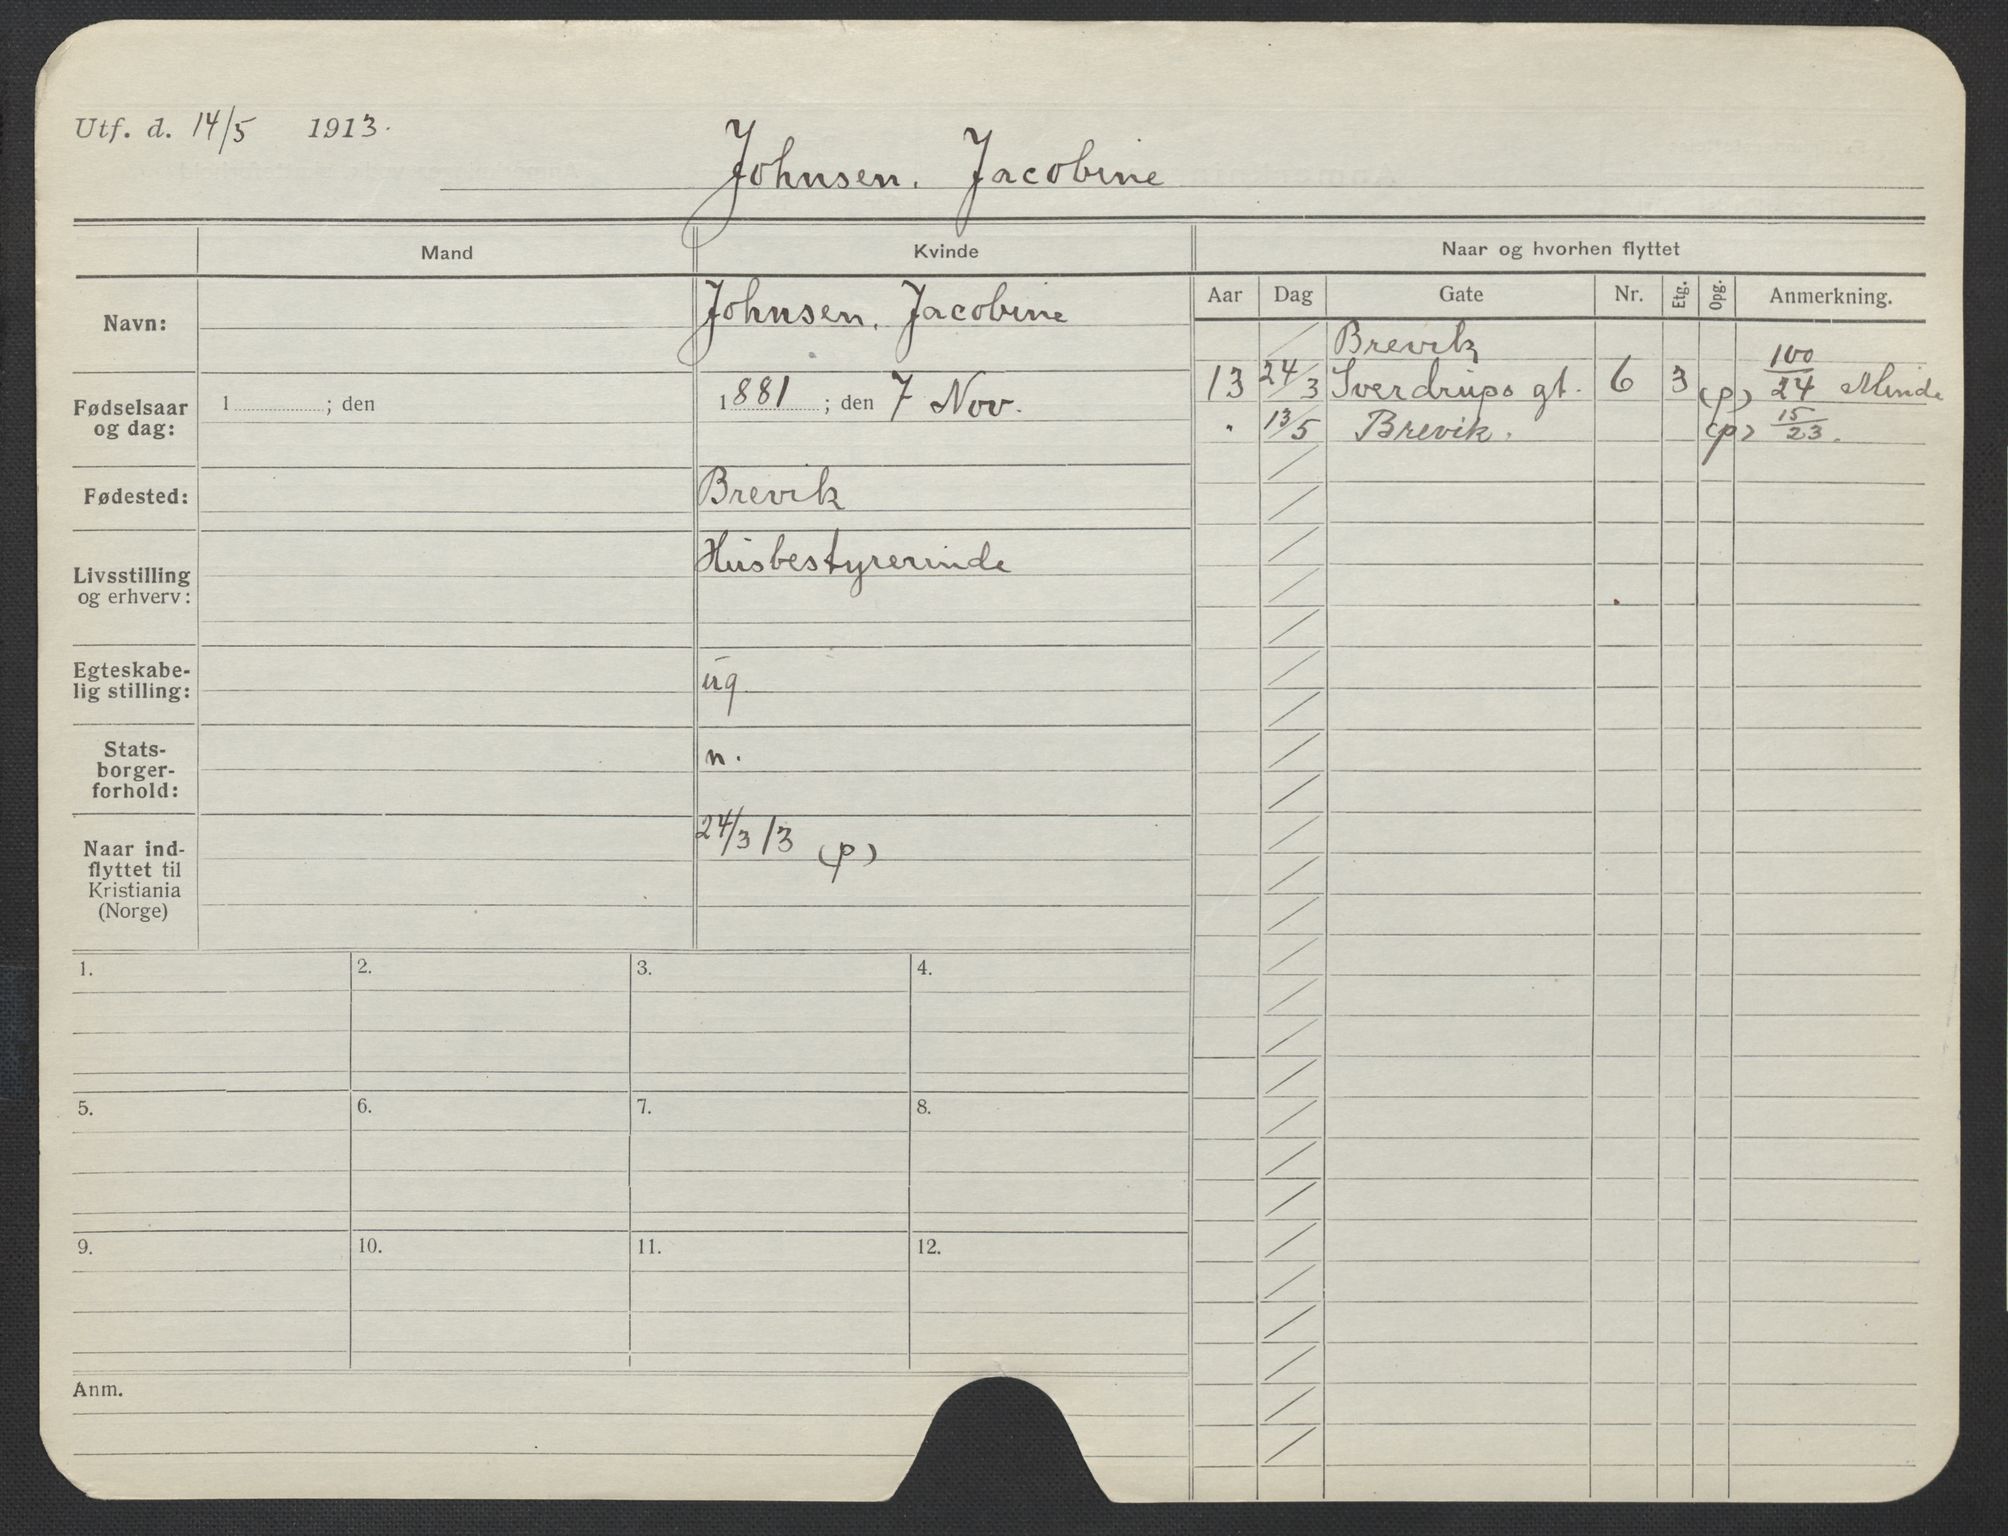 Utf. d. 14/5 1913.
Johnsen. Jacobine
Mand Kvinde Naar og hvorhen flyttet
Aar Dag Gate Nr. Etg. Opg. Anmerkning.
Navn: Johnsen. Jacobine
Fødselsaar og dag: 1 ; den 1881 ; den 7 Nov.
Fødested: Brevik
Livsstilling og erhverv: Husbestyrerinde
Egteskabe-
lig stilling: ug
Stats-
borger-
forhold: n.
Naar ind-
flyttet til
Kristiania
(Norge) 24/3 13 (p)
Brevik
13 24/3 Sverdrups gt. 6 3 (p) 100/24 Minde
" 13/5 Brevik. (p) 15/23.
1. 2. 3. 4.
5. 6. 7. 8.
9. 10. 11. 12.
Anm.